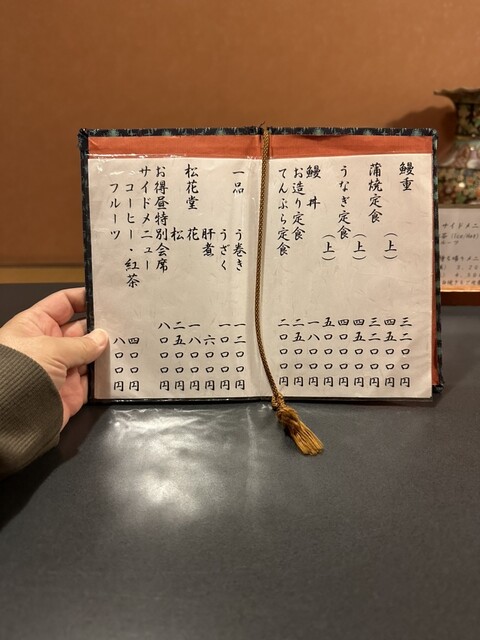 鰻重 三二〇〇円
（上） 四五〇〇円
蒲焼定食 三二〇〇円
（上） 四五〇〇円
うなぎ定食 四〇〇〇円
（上） 五〇〇〇円
鰻丼 一八〇〇円
お造り定食 二五〇〇円
てんぷら定食 二〇〇〇円
一品 う巻き 一二〇〇円
うざく 一〇〇〇円
肝煮 六〇〇円
松花堂 花 一八〇〇円
松 二五〇〇円
お得昼特別会席 八〇〇〇円
サイドメニュー
コーヒー・紅茶 四〇〇円
フルーツ 八〇〇円
サイドメニ
茶 (Ice/Hot)
ルーツ